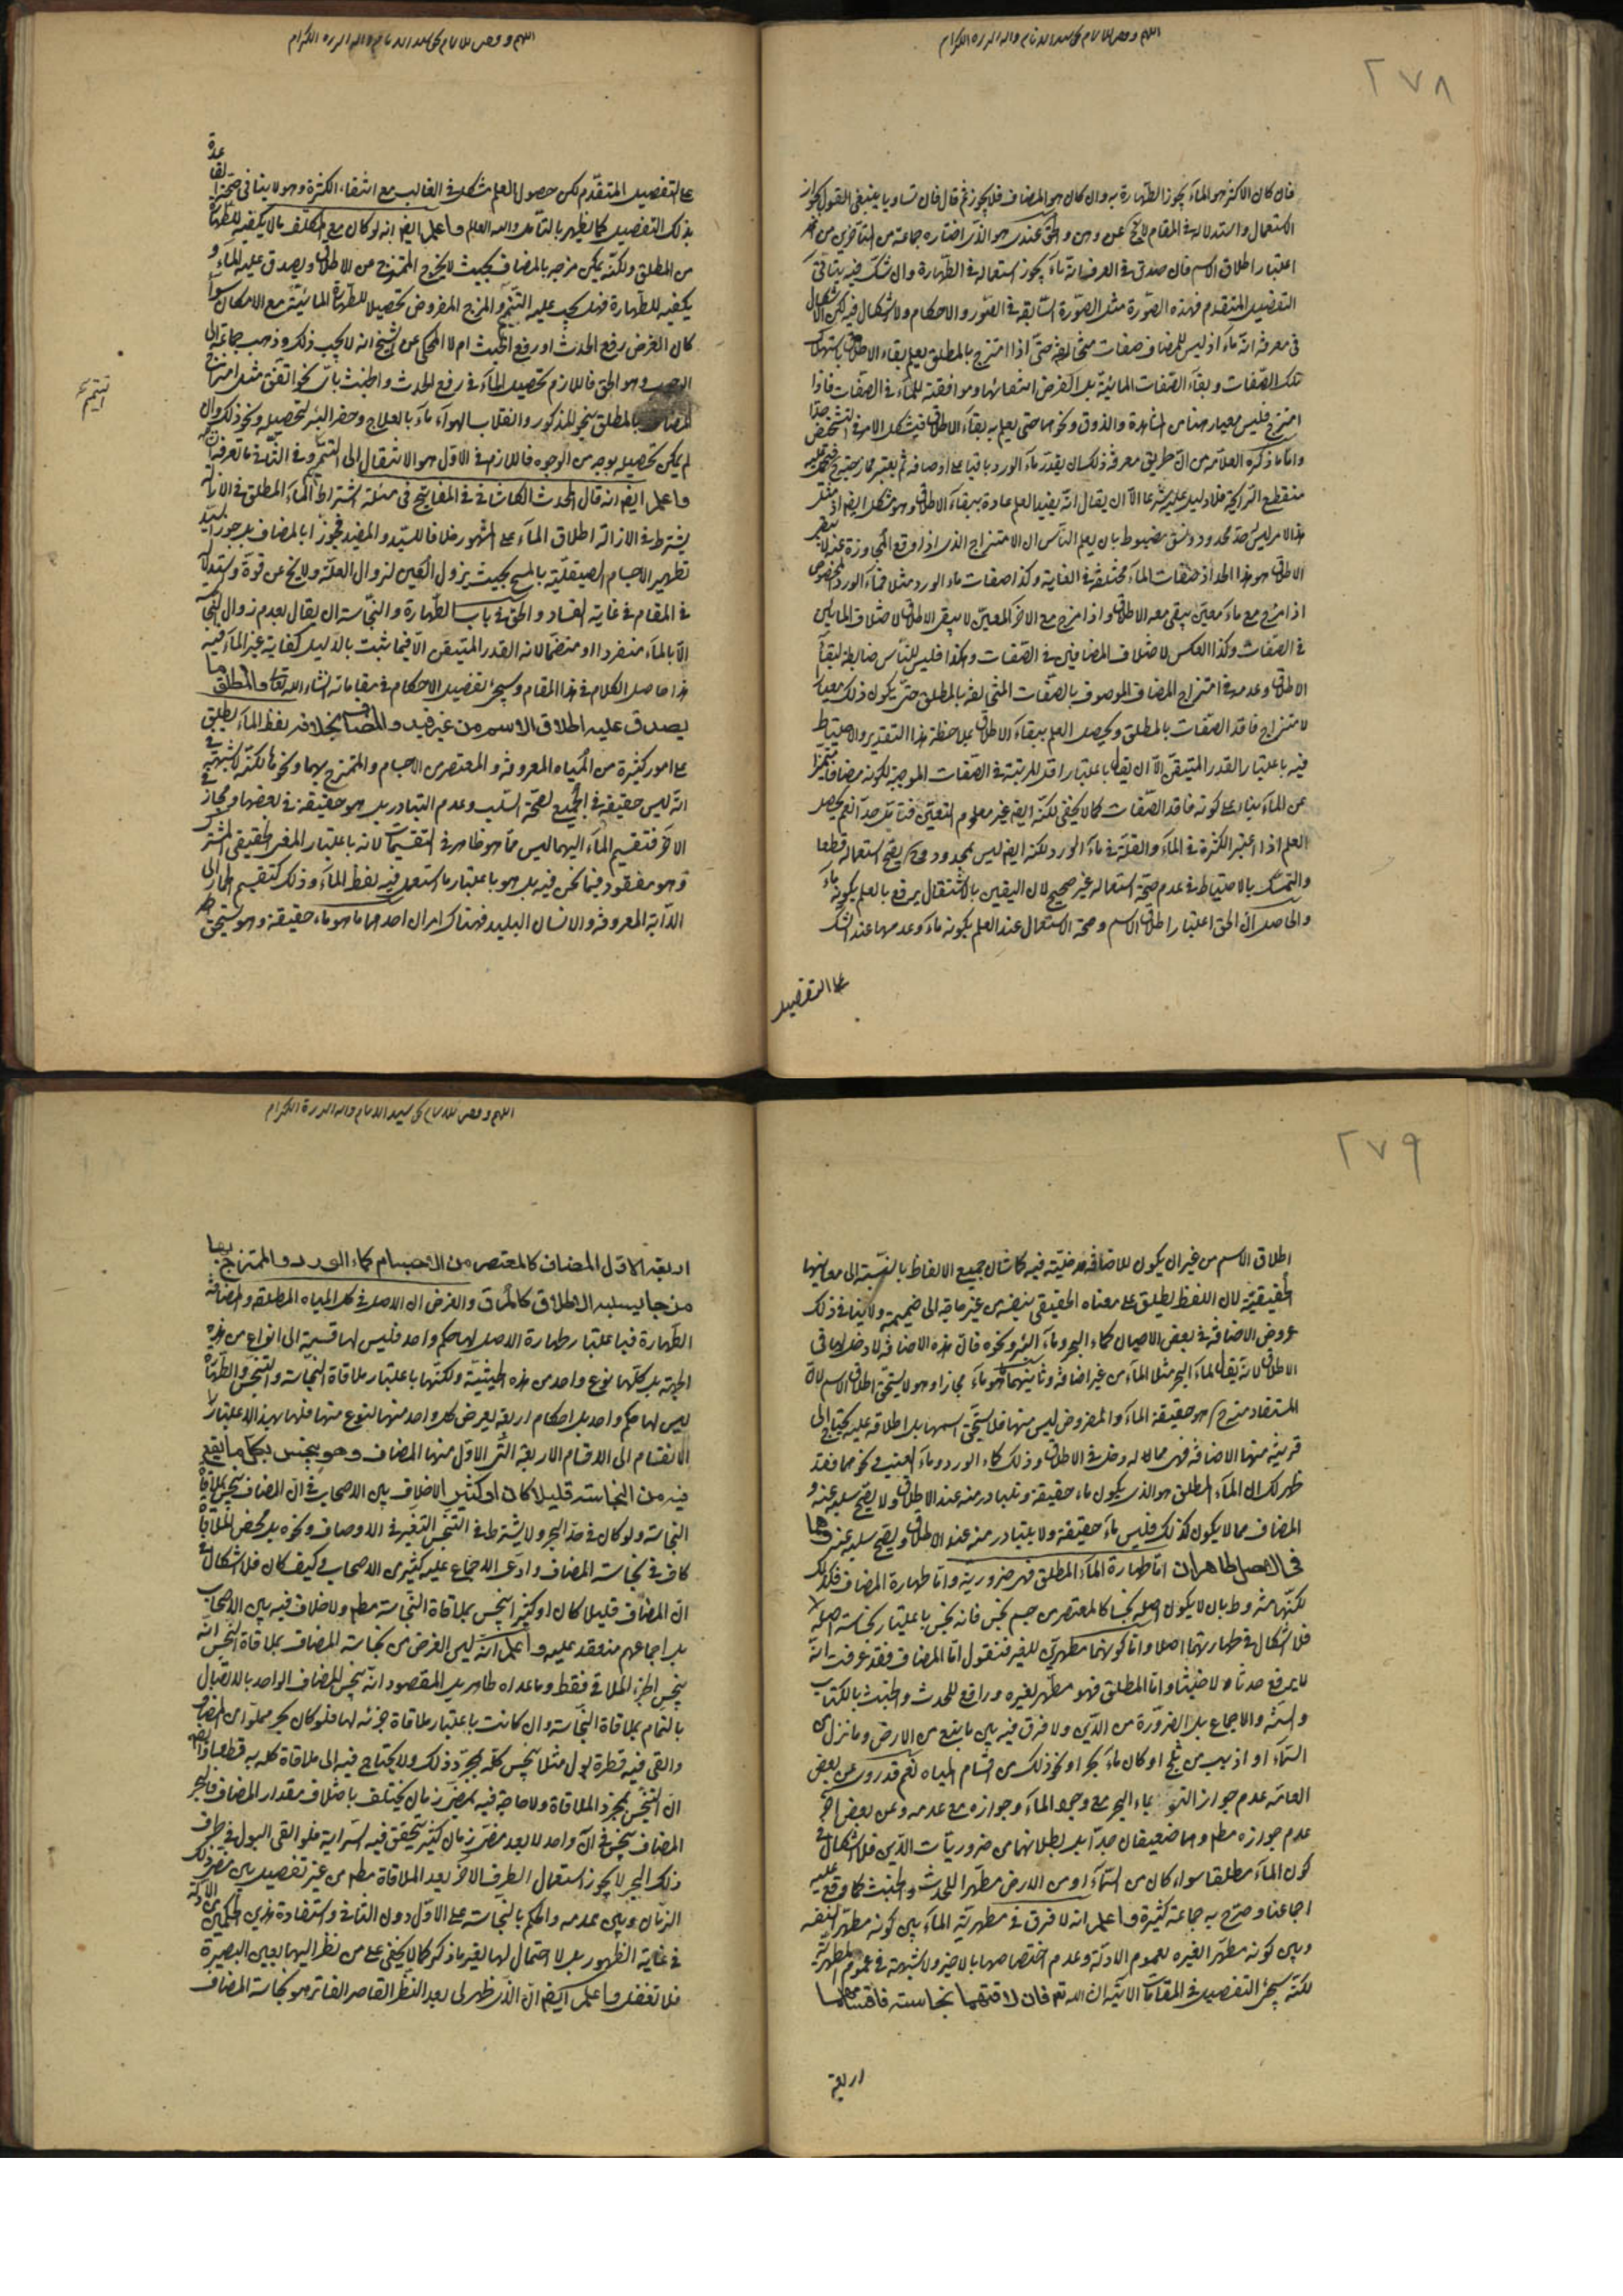 ٢٧٨
فان كان الاكثر هو الماء يجوز الطهارة به وان كان هو المضاف فلا يجوز ثم قال فان تساويا ينبغى القول بجواز
الاستعمال واستدلاله فى المقام لا يخ عن وهن والحق عندى هو الذى اختاره جماعة من المتأخرين من
اعتبار اطلاق الاسم فان صدق فى العرف انه ماء يجوز استعماله فى الطهارة وان شك فيه يتأتى
التفصيل المتقدم فهذه الصورة مثل الصورة السابقة فى الصور والاحكام ولا اشكال فيه لكن الاشكال
فى معرفة انه ماء اذ ليس للمضاف صفات مخالفة حتى اذا امتزج بالمطلق يعلم بقاء الاطلاق باستهلاك
تلك الصفات وبقاء الصفات المائية بل الفرض انتفائها وموافقته للماء فى الصفات فاذا
امتزج فليس معيار هنا من المشاهدة والذوق ونحوهما حتى يعلم به بقاء الاطلاق فيشكل الامر فى التشخيص جدا
واما ما ذكره العلامة من ان طريق معرفة ذلك ان يقدر ماء الورد باقيا على اوصافه ثم يعتبر ممازجته ح فيحمل عليه
منقطع الرائحة فلا دليل عليه شرعا الا ان يقال انه يفيد العلم عادة ببقاء الاطلاق وهو مشكل ايض اذ مثل
هذا الامر ليس له حد محدود ونسق مضبوط بان يعلم الناس ان الامتزاج الذى اذا وقع المجاوزة عنه لا يبقى
الاطلاق هو هذا الحد اذ صفات الماء مختلفة فى الغاية وكذا صفات ماء الورد مثلا فماء الورد المخصوص
اذا مزج مع ماء معين يبقى معه الاطلاق واذا مزج مع الاخر المعين لا يبقى الاطلاق لاختلاف المائين
فى الصفات وكذا العكس لاختلاف المضافين فى الصفات وهكذا فليس للناس ضابطة لبقاء
الاطلاق وعدمه فى امتزاج المضاف الموصوف بالصفات المخالفة بالمطلق حتى يكون ذلك معيارا
لامتزاج فاقد الصفات بالمطلق ويحصل العلم ببقاء الاطلاق بملاحظة هذا التقدير والاحتياط
فيه باعتبار القدر المتيقن الا ان يقال باعتبار اقل المرتبة فى الصفات الموجبة لكونه مضافا متميزا
عن الماء بناء على كونه فاقد الصفات كما لا يخفى لكنه ايض غير معلوم التعين فتأمل جدا نعم يحصل
العلم اذا اعتبر الكثرة فى الماء والقلة فى ماء الورد لكنه ايض ليس بمحدود وح يصح استعماله قطعا
والتمسك بالاحتياط فى عدم صحة استعماله غير صحيح لان اليقين بالاشتغال يرفع بالعلم بكونه ماء
والحاصل ان الحق اعتبار اطلاق الاسم وصحة الاستعمال عند العلم بكونه ماء وعدمها عند الشك
على التفصيل
على التفصيل المتقدم لكن حصول العلم مشكل فى الغالب مع انتفاء الكثرة وهو لا ينافى صحة القاعدة
بذلك التفصيل كما يظهر بالتأمل والله العالم واعلم ايض انه لو كان مع المكلف ما لا يكفيه للطهارة
من المطلق ولكنه يمكن مزجه بالمضاف بحيث لا يخرج الممتزج عن الاطلاق ويصدق عليه الماء و
يكفيه للطهارة فهل يجب عليه التتميم والمزج المفروض تحصيلا للطهارة المائية مع الامكان سواء
كان الغرض رفع الحدث او رفع الخبث ام لا المحكى عن الشيخ انه لا يجب ذلك وذهب جماعة الى
الوجوب وهو الحق فاللازم تحصيل الماء فى رفع الحدث والخبث باى نحو اتفق مثل امتزاج
المضاف بالمطلق بنحو المذكور وانقلاب الهواء ماء بالعلاج وحفر البئر لتحصيله ونحو ذلك وان
لم يمكن تحصيله بوجه من الوجوه فاللازم فى الاول هو الانتقال الى التيمم وفى الثانى ما تعرفه
واعلم ايض انه قال المحدث الكاشانى فى المفاتيح فى مسئلة اشتراط الماء المطلق فى الازالة
يشترط فى الازالة اطلاق الماء على المشهور خلافا للسيد والمفيد فجوزا بالمضاف بل جوز السيد
تطهير الاجسام الصيقلية بالمسح بحيث يزول العين لزوال العلة ولا يخ عن قوة واستدلاله
فى المقام فى غاية الفساد والحق فى باب الطهارة والنجاسة ان يقال بعدم زوال النجاسة
الا بالماء منفردا او منضما لانه القدر المتيقن الا فيما ثبت بالدليل كفاية غير الماء فيه
هذا حاصل الكلام فى هذا المقام وسيجئ تفصيل الاحكام فى مقاماته انشاء الله تعالى والمطلق ما
يصدق عليه اطلاق الاسم من غير قيد والمضاف بخلافه لفظ الماء يطلق
على امور كثيرة من المياه المعروفة والمعتصر من الاجسام والممتزج بهما ونحوها لكنه لا شبهة فى
انه ليس حقيقة فى الجميع لصحة السلب وعدم التبادر بل هو حقيقة فى بعضها ومجاز فى
الاخر فتقسيم الماء اليهما ليس مما هو ظاهر فى التقسيمات لانه باعتبار المعنى الحقيقى المشترك
وهو مفقود فيما نحن فيه بل هو باعتبار ما استعمل فيه لفظ الماء وذلك كتقسيم الحمار الى
الدابة المعروفة والانسان البليد فهناك امران احدهما ما هو ماء حقيقة وهو يستحق
٢٧٩
اطلاق الاسم من غير ان يكون للاضافة مدخلية فيه كما شان جميع الالفاظ بالنسبة الى معانيها
الحقيقية لان اللفظ يطلق على معناه الحقيقى بنفسه من غير حاجة الى ضميمة ولا ينافى ذلك
عروض الاضافة فى بعض الاحيان كماء البحر وماء البئر ونحوه فان هذه الاضافة لا دخل لها فى
الاطلاق لانه يقال لماء البحر مثلا الماء من غير اضافة وثانيهما ما هو ماء مجازا وهو لا يستحق اطلاق الاسم لان
المستفاد منه هو حقيقة الماء والمفروض ليس منها فلا يستحق اسمها بل اطلاقه عليه يحتاج الى
قرينة منها الاضافة فهى مما له دخل فى الاطلاق وذلك كماء الورد وماء العنب ونحوهما فقد
ظهر لك ان الماء المطلق هو الذى يكون ماء حقيقة ويتبادر منه عند الاطلاق ولا يصح سلبه عنه و
المضاف مما لا يكون كذلك فليس ماء حقيقة ولا يتبادر منه عند الاطلاق ويصح سلبه عنه وهما
فى الاصل طاهران اما طهارة الماء المطلق فهو ضرورية واما طهارة المضاف فكذلك
لكنها مشروط بان لا يكون اصله نجسا كالمعتصر من جسم نجس فانه نجس باعتبار نجاسة اصله
فلا اشكال فى طهارتهما اصلا واما كونهما مطهرين للغير فنقول اما المضاف فقد عرفت انه
لا يرفع حدثا ولا خبثا واما المطلق فهو مطهر لغيره ورافع للحدث والخبث بالكتاب
والسنة والاجماع بل الضرورة من الدين ولا فرق فيه بين ما ينبع من الارض وما نزل من
السماء او اذيب من ثلج او كان ماء بحر او نحو ذلك من اقسام المياه نعم قد روى عن بعض
العامة عدم جواز التوضؤ بماء البحر مع وجود الماء وجوازه مع عدمه وعن بعض اخر
عدم جوازه مطم وهما ضعيفان جدا بل بطلانهما من ضروريات الدين فلا اشكال فى
كون الماء مطلقا سواء كان من السماء او من الارض مطهرا للحدث والخبث كما وقع عليه
اجماعنا وصرح به جماعة كثيرة واعلم انه لا فرق فى مطهرية الماء بين كونه مطهرا لنفسه
وبين كونه مطهرا لغيره لعموم الادلة وعدم اختصاصها بالاخير ولا شبهة فى عموم المطهرية
لكنه سيجئ التفصيل فى المقامات الاتية ان الله تع فان لاقتهما نجاسة فاقسامهما
اربعة
اربعة الاول المضاف كالمعتصر من الاجسام كماء الورد والممتزج بها
مزجا يسلبه الاطلاق كالمرق والغرض ان الاصل فى كل المياه المطلقة والمضافة
الطهارة فباعتبار طهارة الاصل لها حكم واحد فليس لها قسمة الى انواع من هذه
الجهة بل كلها نوع واحد من هذه الحيثية ولكنها باعتبار ملاقاة النجاسة والتنجس والطهارة
ليس لها حكم واحد بل احكام اربعة يعرض كل واحد منها لنوع منها فلها بهذا الاعتبار
الانقسام الى الاقسام الاربعة التى الاول منها المضاف وهو ينجس بكل ما يقع
فيه من النجاسة قليلا كان او كثيرا لا خلاف بين الاصحاب فى ان المضاف ينجس بملاقاة
النجاسة ولو كان فى حد البحر ولا يشترط فى التنجس التغير فى الاوصاف ونحوه بل محض الملاقاة
كاف فى نجاسة المضاف وادعى الاجماع عليه كثير من الاصحاب وكيف كان فلا اشكال فى
ان المضاف قليلا كان او كثيرا ينجس بملاقاة النجاسة مطم ولا خلاف فيه بين الاصحاب
بل اجماعهم منعقد عليه واعلم انه ليس الغرض من نجاسة المضاف بملاقاة النجس انه
ينجس الجزء الملاقى فقط وما عداه طاهر بل المقصود انه ينجس المضاف الواحد بالاتصال
بالتمام بملاقاة النجاسة وان كانت باعتبار ملاقاة جزئه لها فلو كان بحر مملوا من المضاف
والقى فيه قطرة بول مثلا ينجس كله بمجرد ذلك ولا يحتاج فيه الى ملاقاة كله به قطعا واعلم ايض
ان التنجس بمجرد الملاقاة ولا حاجة فيه بمضى زمان يختلف باختلاف مقدار المضاف فالبحر
المضاف ينجس فى آن واحد لا بعد مضى زمان كثير يتحقق فيه السراية فلو القى البول فى طرف
ذلك البحر لا يجوز استعمال الطرف الاخر بعد الملاقاة مطم من غير تفصيل بين مضى ذلك
الزمان وبين عدمه والحكم بالنجاسة على الاول دون الثانى واستفادة هذين الحكمين من الادلة
فى غاية الظهور بل لا احتمال لها لغير ما ذكر كما لا يخفى على من نظر اليها بعين البصيرة
فلا تغفل واعلم ايض ان الذى ظهر لى بعد النظر القاصر الفاتر هو نجاسة المضاف